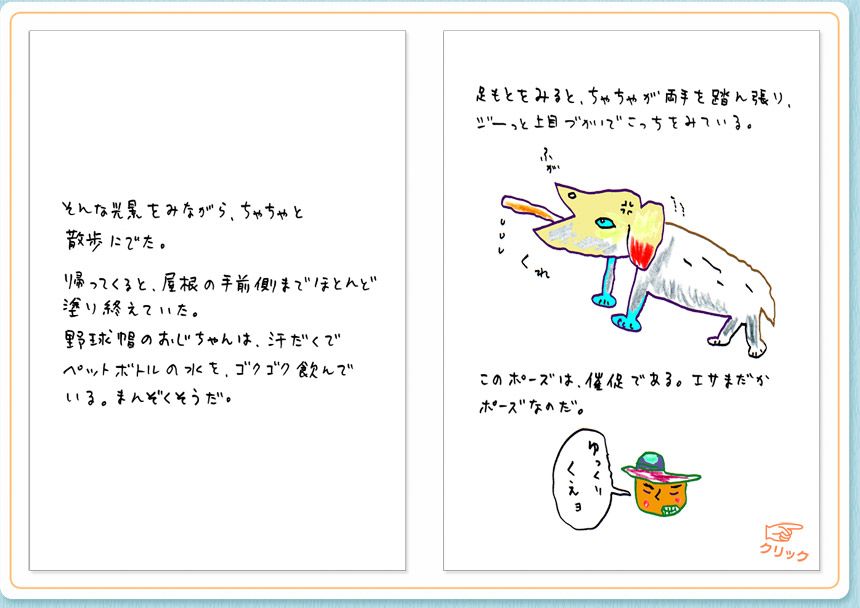 そんな光景をみながら、ちゃちゃと
散歩にでた。
帰ってくると、屋根の手前側までほとんど
塗り終えていた。
野球帽のおじちゃんは、汗だくで
ペットボトルの水を、ゴクゴク飲んで
いる。まんぞくそうだ。
足もとをみると、ちゃちゃが両手を踏ん張り、
ジーっと上目づかいでこっちをみている。
ふが
くれ
このポーズは、催促である。エサまだか
ポーズなのだ。
ゆっくり
くえヨ
クリック